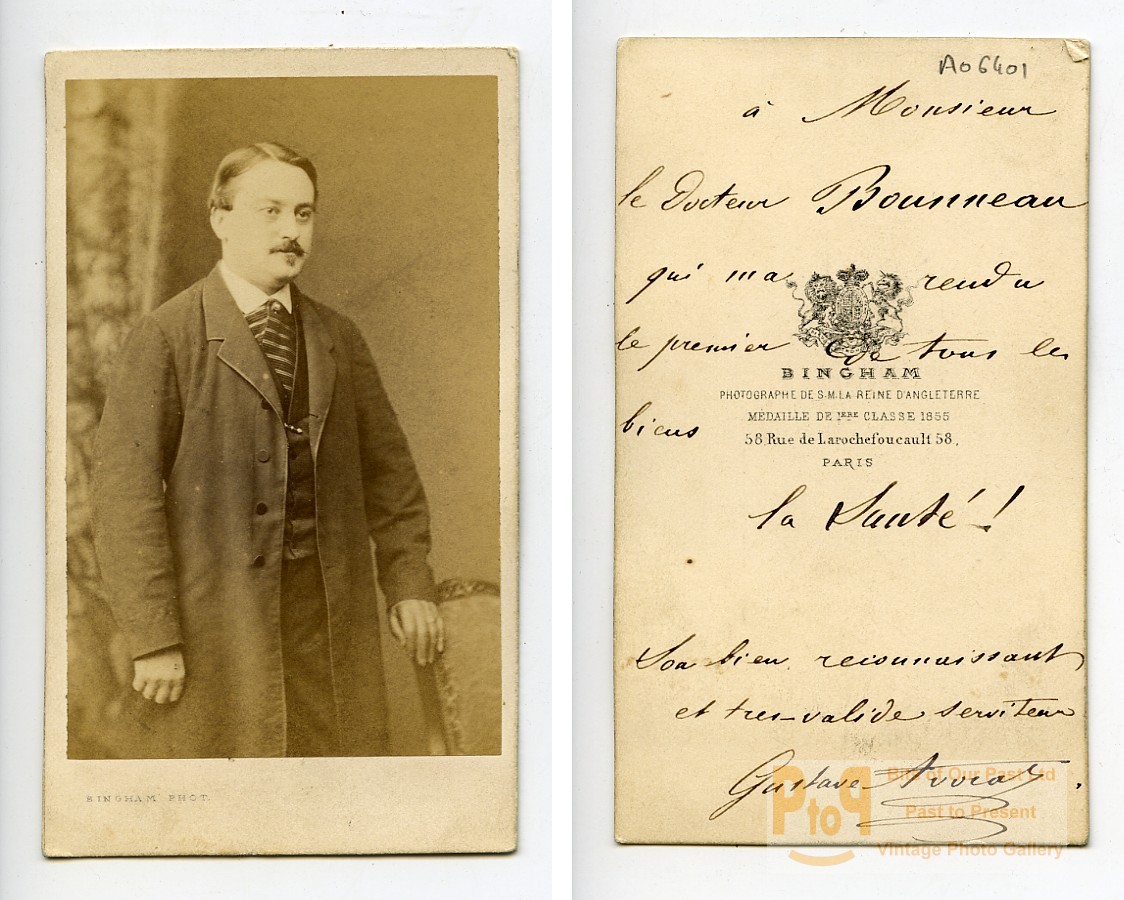 BINGHAM PHOT.
A06401
à Monsieur
le Docteur Bounneau
qui m'a rendu
le premier de tous les
BINGHAM
PHOTOGRAPHE DE S.M. LA REINE D'ANGLETERRE
biens
MÉDAILLE DE 1ERE CLASSE 1855
58 Rue de Larochefoucault 58,
PARIS
la Santé !
Son bien reconnaissant
et tres-valide serviteur
Gustave Avocat
PtoP
Bits of Our Past Ltd
Past to Present
Vintage Photo Gallery